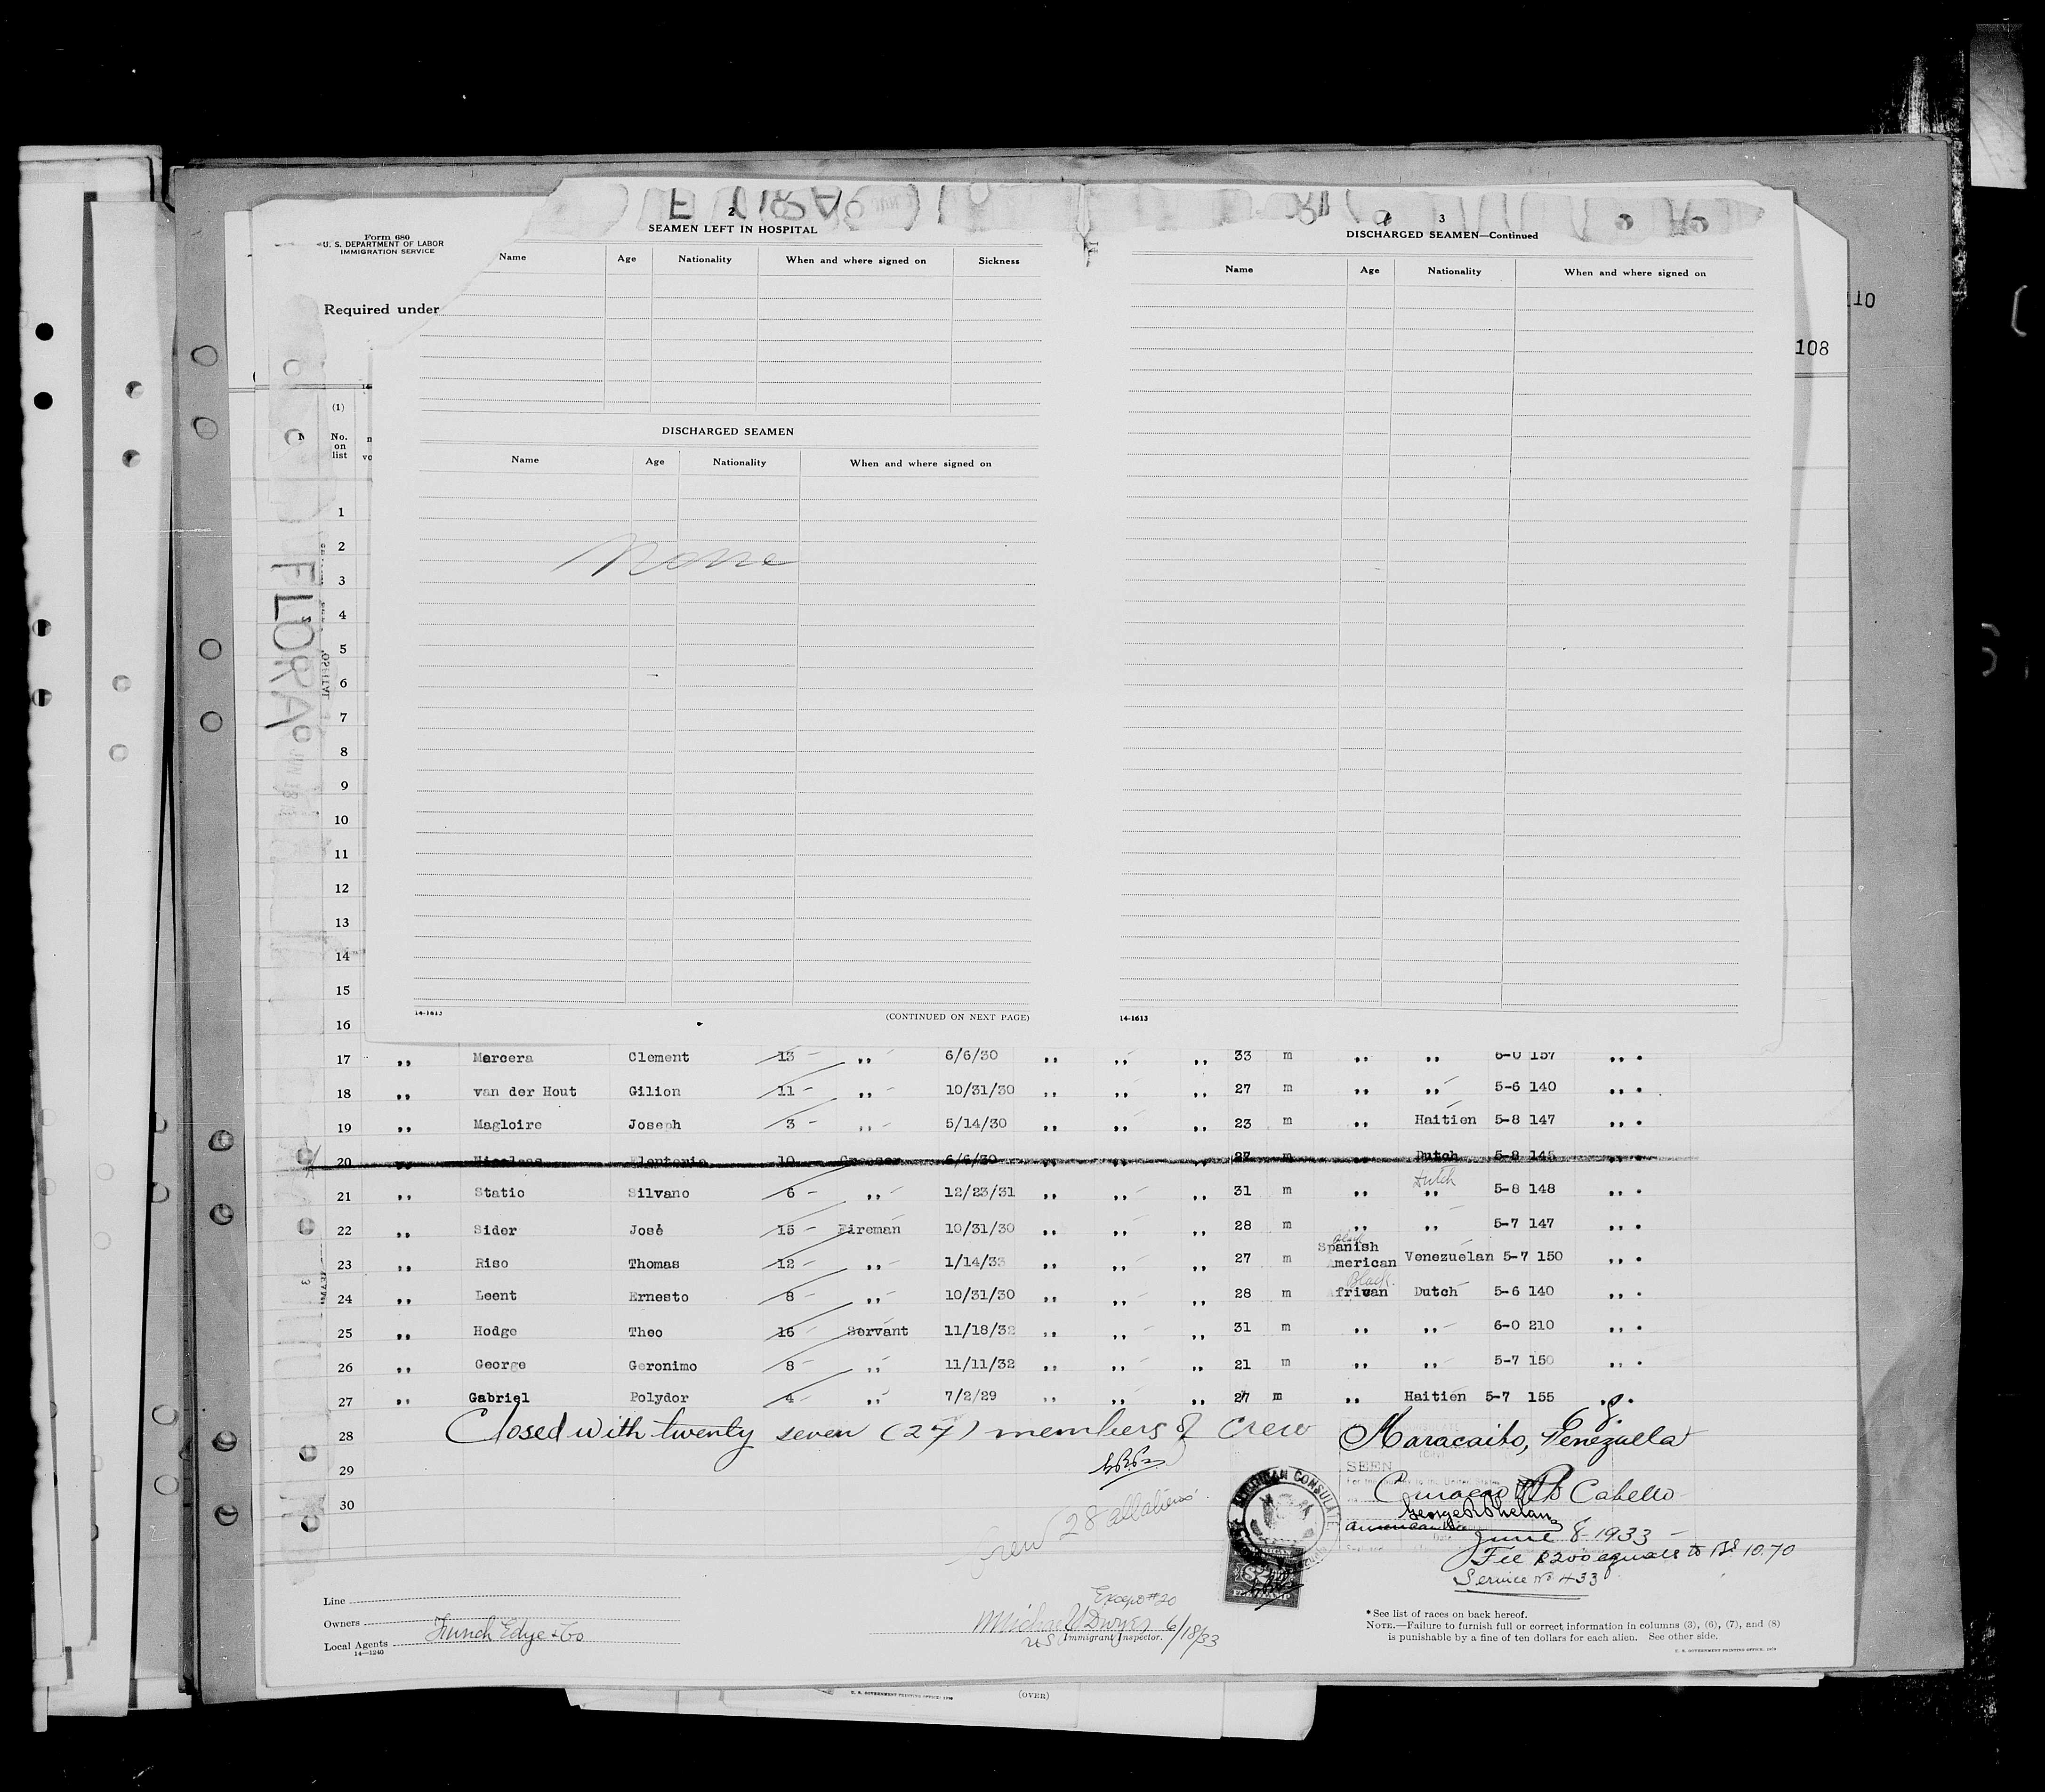 2
SEAMEN LEFT IN HOSPITAL
Form 680
U. S. DEPARTMENT OF LABOR
IMMIGRATION SERVICE
Required under
Name Age Nationality When and where signed on Sickness
DISCHARGED SEAMEN
Name Age Nationality When and where signed on
None
14-1613 (CONTINUED ON NEXT PAGE)
3
DISCHARGED SEAMEN—Continued
Name Age Nationality When and where signed on
14-1613
10
108
(1)
No. on list
FLORA
1
2
3
4
5
6
7
8
9
10
11
12
13
14
15
16
17 ,, Marcera Clement 13 - ,, - 6/6/30 ,, ,, ,, 33 m ,, ,, 6-0 157 ,, .
18 ,, van der Hout Gilion 11 - ,, - 10/31/30 ,, ,, ,, 27 m ,, ,, 5-6 140 ,, .
19 ,, Magloire Joseph 3 - ,, - 5/14/30 ,, ,, ,, 23 m ,, Haitien 5-8 147 ,, .
20 ,, 10 Greaser 6/6/30 ,, ,, ,, 27 m ,, Dutch 5-8 145 ,, .
21 ,, Statio Silvano 6 - ,, - 12/23/31 ,, ,, ,, 31 m ,, Dutch ,, 5-8 148 ,, .
22 ,, Sider José 15 - Fireman 10/31/30 ,, ,, ,, 28 m ,, ,, 5-7 147 ,, .
23 ,, Riso Thomas 12 - ,, - 1/14/33 ,, ,, ,, 27 m Spanish American Venezuelan 5-7 150 ,, .
24 ,, Leent Ernesto 8 - ,, - 10/31/30 ,, ,, ,, 28 m Black African Dutch 5-6 140 ,, .
25 ,, Hodge Theo 16 - Servant 11/18/32 ,, ,, ,, 31 m ,, ,, 6-0 210 ,, .
26 ,, George Geronimo 8 - ,, - 11/11/32 ,, ,, ,, 21 m ,, ,, 5-7 150 ,, .
27 ,, Gabriel Polydor 4 - ,, 7/2/29 ,, ,, ,, 27 m ,, Haitien 5-7 155 ,, .
28 Closed with twenty seven (27) members of crew Maracaibo, Venezuela
29
SEEN
Curacao Pto Cabello
30
Crew 28 all aliens
George R Phelan
AMERICAN CONSULATE
June 8-1933 -
Fee $200 equals to Bs 10.70
Service No 433
Line
Owners
Local Agents Funch Edye & Co
14-1240
Except #20
Michael Dwyer 6/18/33
US Immigrant Inspector.
* See list of races on back hereof.
NOTE.—Failure to furnish full or correct information in columns (3), (6), (7), and (8)
is punishable by a fine of ten dollars for each alien. See other side.
(OVER)